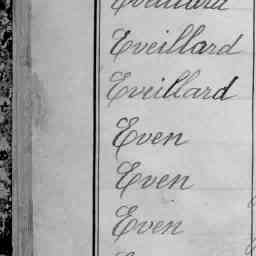 Eveillard
Eveillard
Eveillard
Even
Even
Even